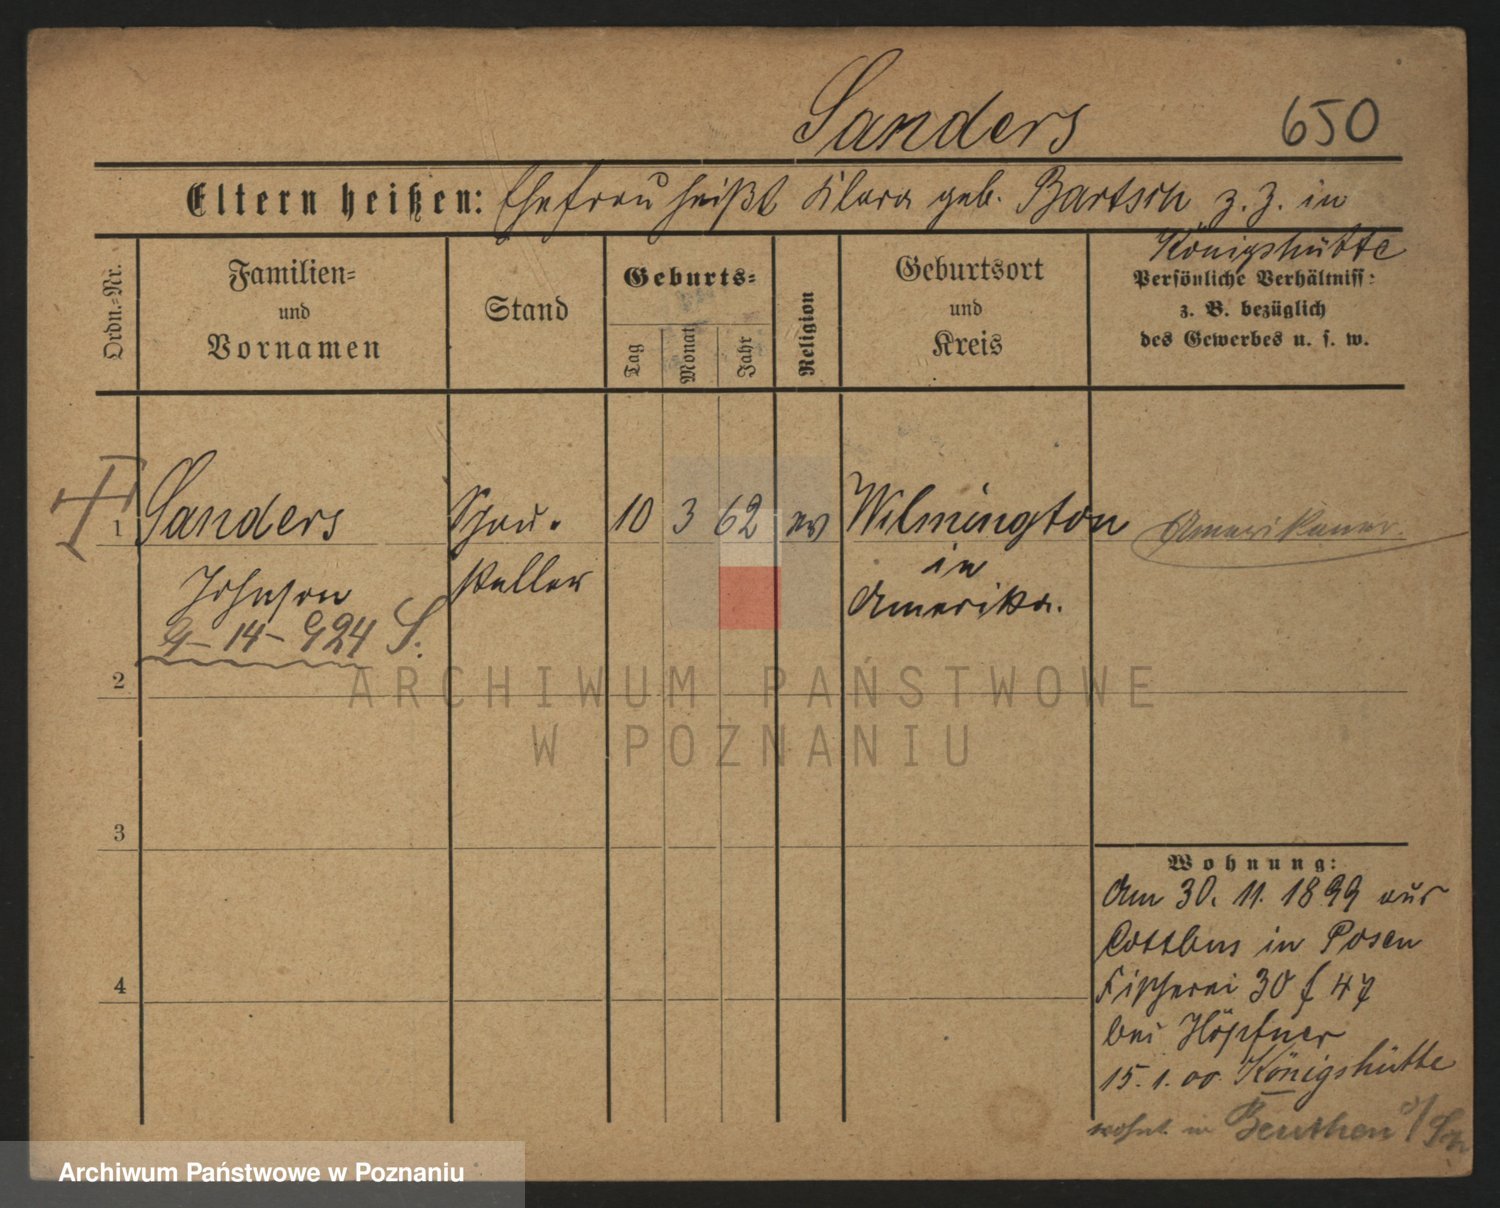 Sanders
650
Eltern heißen: Ehefrau heißt Klara geb. Bartsch z. Z. in
Königshütte
Ordn.-Nr.
Familien-
und
Vornamen
Stand
Geburts-
Tag
Monat
Jahr
Religion
Geburtsort
und
Kreis
Persönliche Verhältniss-
z. B. bezüglich
des Gewerbes u. s. w.
1 Sanders Schau- 10 3 62 ev Wilmington Amerikaner.
Johnson steller in
Amerika.
9-14-924 S.
2
3
4
Wohnung:
Am 30. 11. 1899 aus
Cottbus in Posen
Fischerei 30 f 47
bei Höpfner
15. 1. 00 Königshütte
wohnt in Beuthen o/Sn
ARCHIWUM PAŃSTWOWE
W POZNANIU
Archiwum Państwowe w Poznaniu